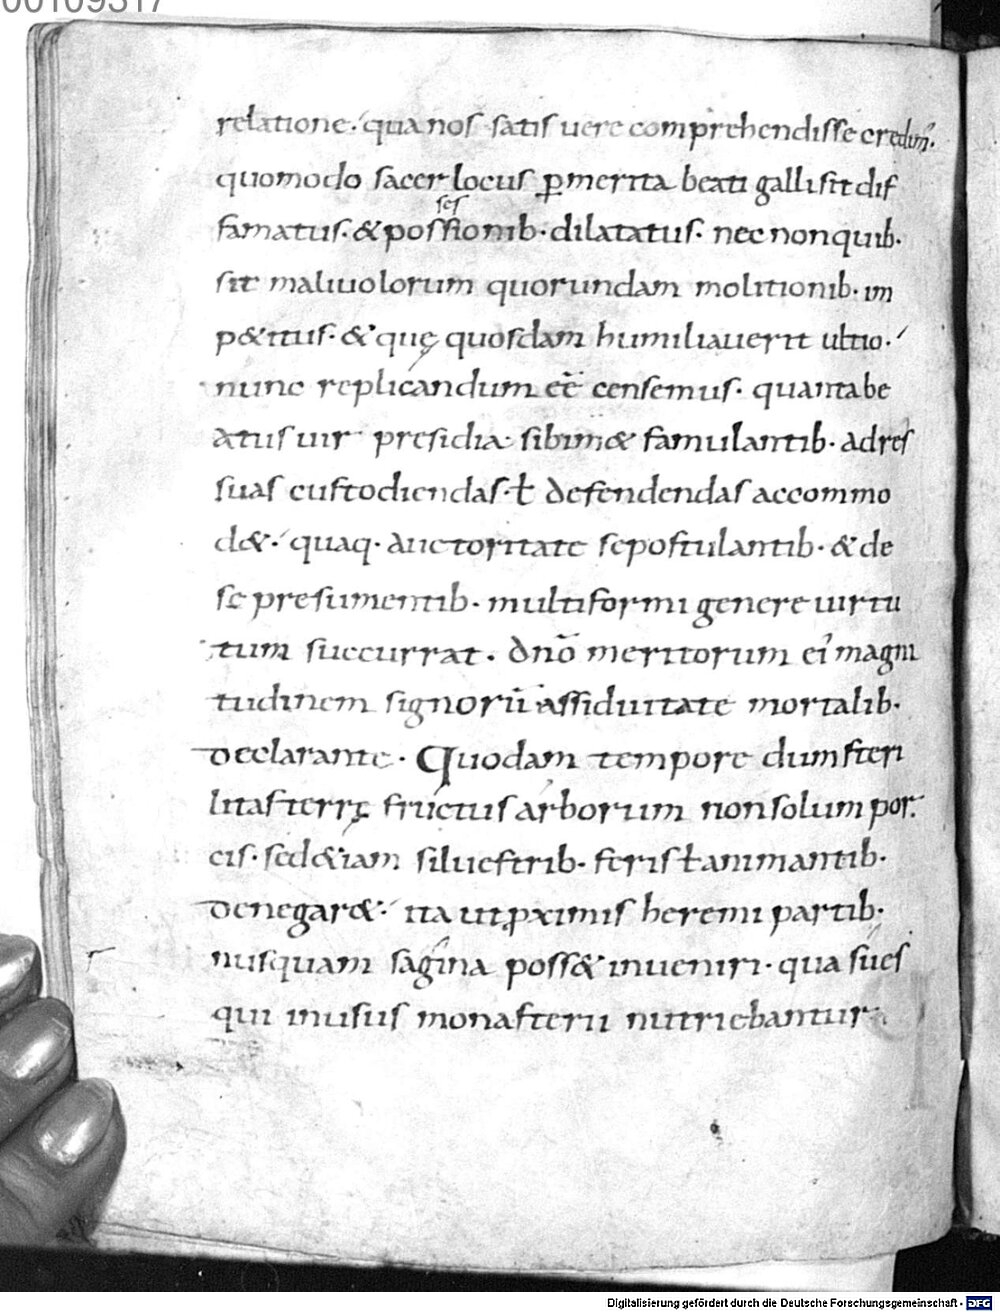 00109317
relatione· qua nos satis uere comprehendisse credim̄·
quomodo sacer locus ꝑ merita beati galli sit dif
famatus· & possessionib· dilatatus· nec non quib·
sit maliuolorum quorundam molitionib· im
p&itus· & quę quosdam humiliauerit ultio·
nunc replicandum eē censemus· quanta be
atus uir presidia sibim& famulantib· ad res
suas custodiendas· ł defendendas accommo
d&· quaq· auctoritate se postulantib· & de
se presumentib· multiformi genere uirtu
tum succurrat· dn̄o meritorum ei' magni
tudinem signorū assiduitate mortalib·
declarante· Quodam tempore dum steri
litas terrę fructus arborum non solum por
cis· sed &iam siluestrib· feris ł animantib·
denegar&· ita ut ꝓximis heremi partib·
nusquam sagina poss& inueniri· qua sues
qui in usus monasterii nutriebantur
Digitalisierung gefördert durch die Deutsche Forschungsgemeinschaft - DFG